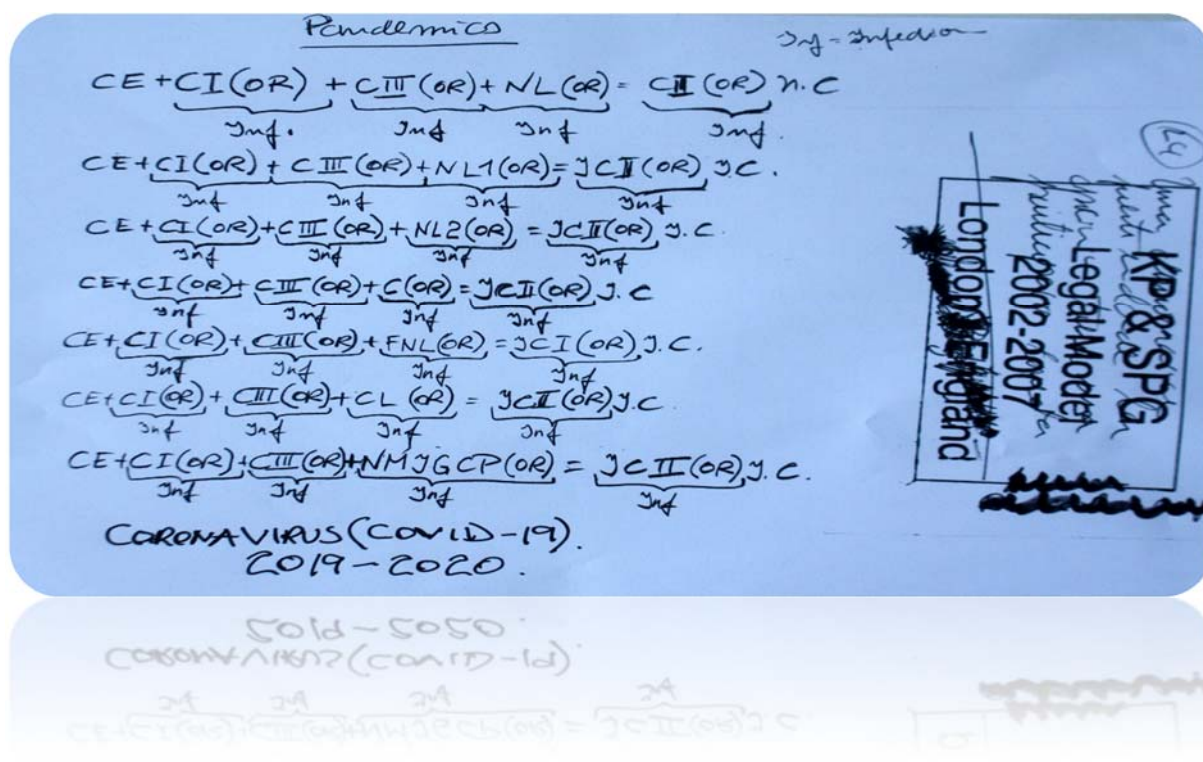 Pandemics
Inf = Infection
CE + CI (OR) + CIII (OR) + NL (OR) = CII (OR) n.C
Inf. Inf Inf Inf.
CE + CI (OR) + CIII (OR) + NL1 (OR) = JCII (OR) J.C.
Inf Inf Inf Inf
CE + CI (OR) + CIII (OR) + NL2 (OR) = JCII (OR) J.C.
Inf Inf Inf Inf
CE + CI (OR) + CIII (OR) + C (OR) = JCII (OR) J.C
Inf Inf Inf Inf
CE + CI (OR) + CIII (OR) + FNL (OR) = JCI (OR) J.C.
Inf Inf Inf Inf
CE + CI (OR) + CIII (OR) + CL (OR) = JCII (OR) J.C
Inf Inf Inf Inf
CE + CI (OR) + CIII (OR) + NMJGCP (OR) = JCII (OR) J.C.
Inf Inf Inf Inf
CORONAVIRUS (COVID-19).
2019-2020.
KP & SPG
Legal Model
2002-2007
London England